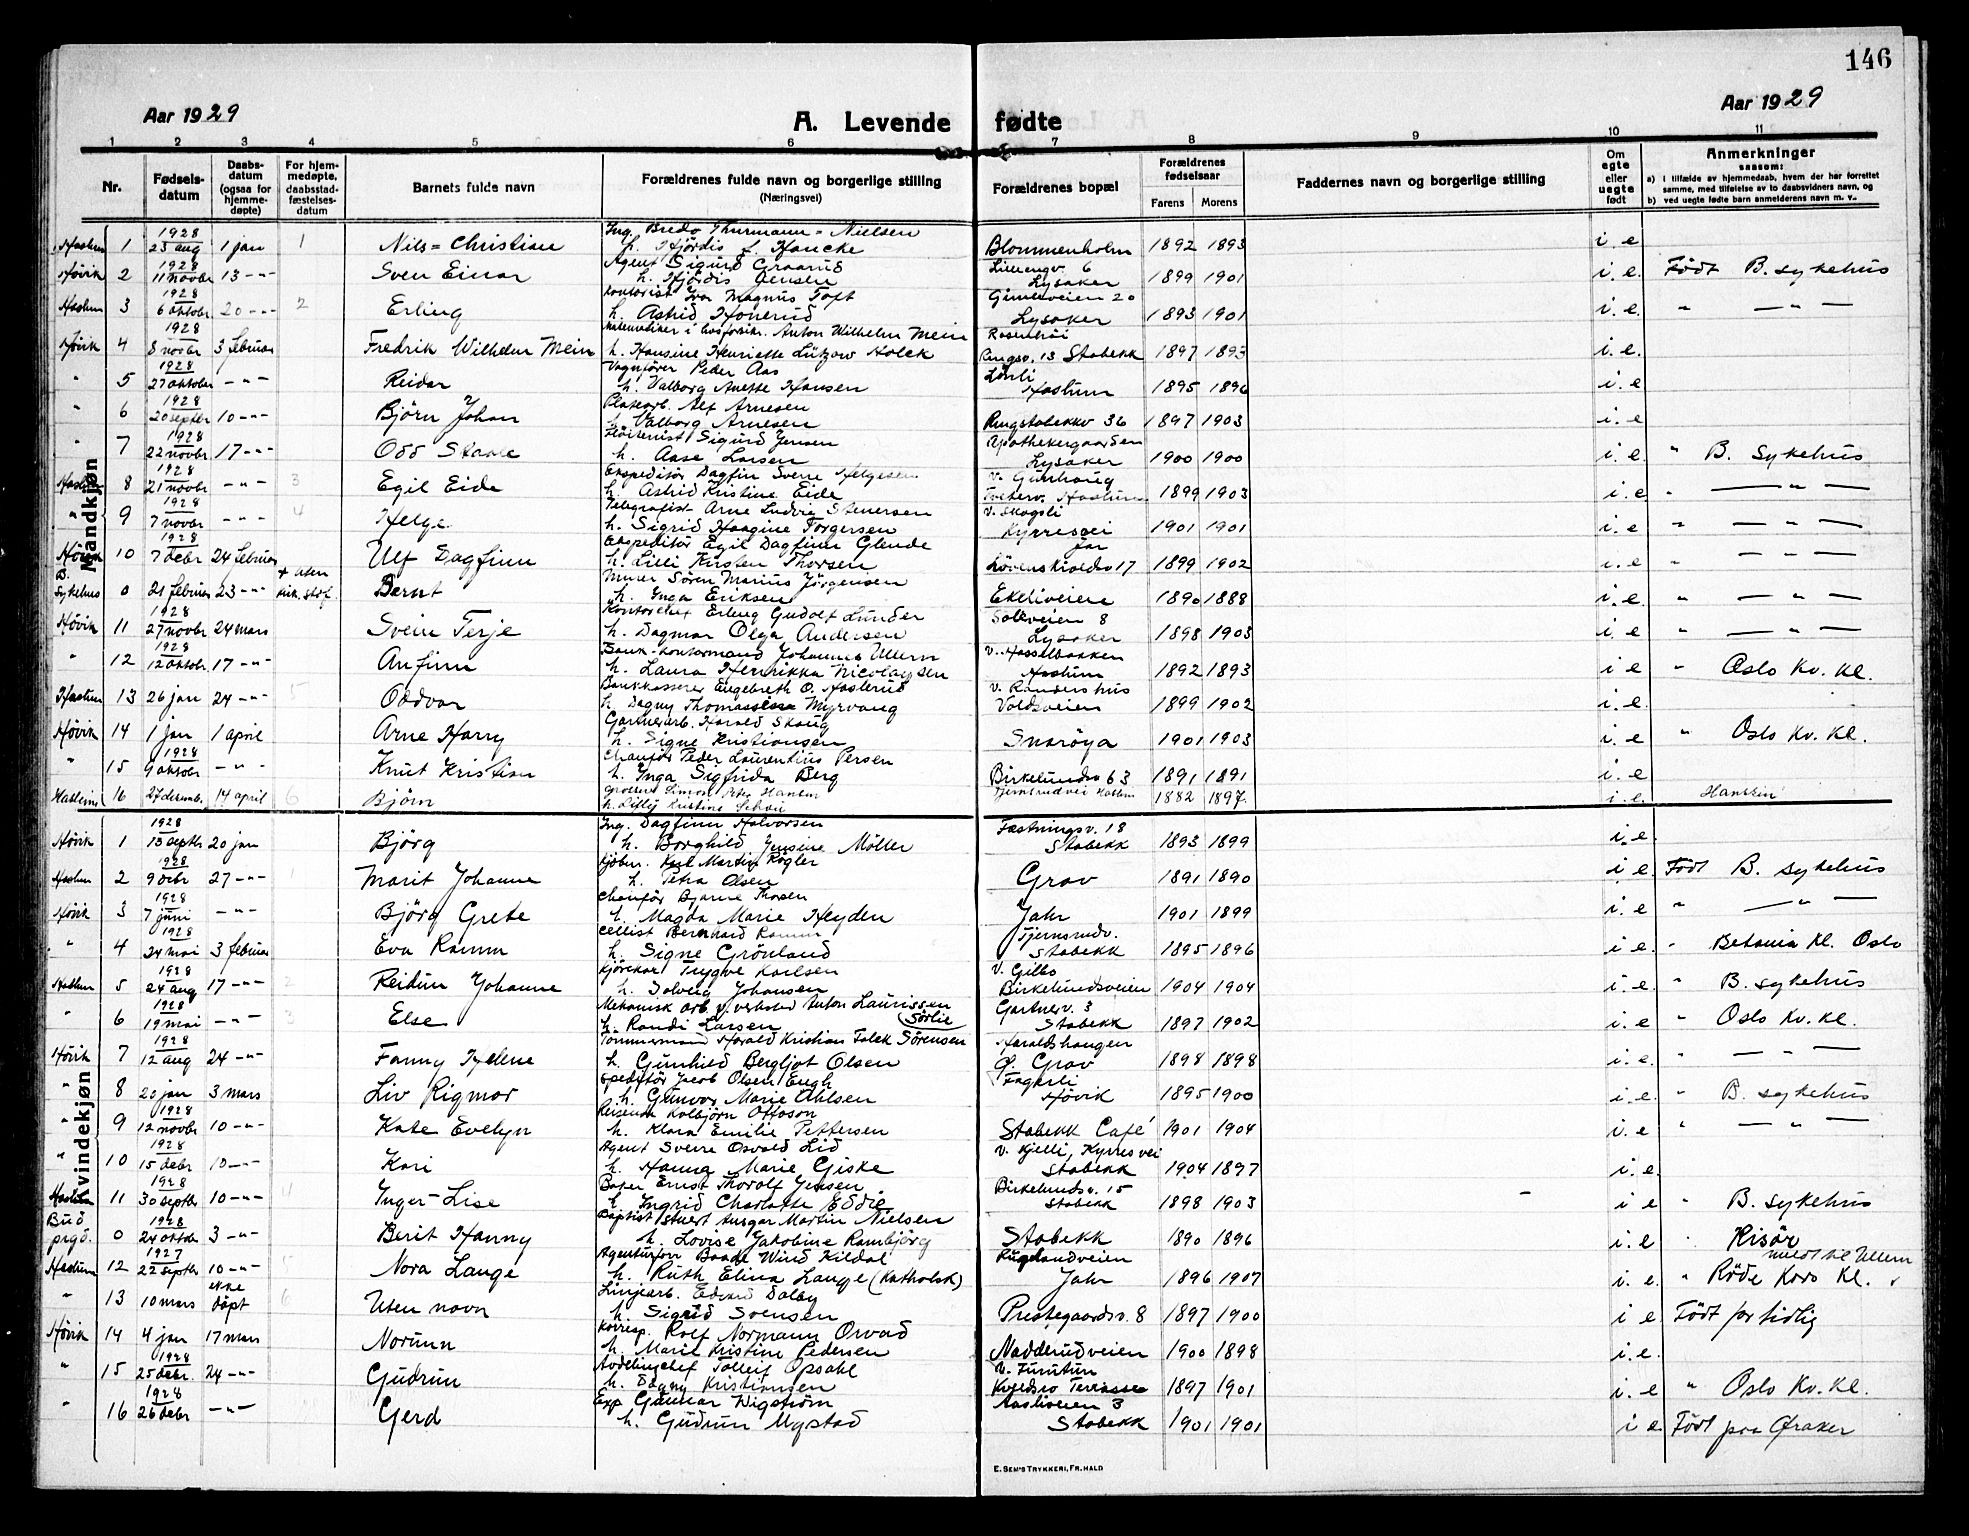 146
Aar 1929
A. Levende fødte
Aar 1929
1 2 3 4 5 6 7 8 9 10 11
Nr.
Fødsels-datum
Daabs-datum (ogsaa for hjemme-døpte)
For hjem-medøpte, daabsstad-fæstelses-datum
Barnets fulde navn
Forældrenes fulde navn og borgerlige stilling (Næringsvei)
Forældrenes bopæl
Forældrenes fødselsaar
Farens Morens
Faddernes navn og borgerlige stilling
Om egte eller uegte født
Anmerkninger
saasom:
a) i tilfælde av hjemmedaab, hvem der har forrettet samme, med tilføielse av to daabsvidners navn, og
b) ved uegte fødte barn anmelderens navn m. v.
Mandkjøn
Haslum 1 1928 23 aug 1 jan 1 Nils=Christian Ing. Bredo Thurmann-Nielsen h. Hjördis f. Hancke Blommenholm 1892 1893 i e
Høvik 2 1928 11 novbr 13 -"- Sven Einar Agent Sigurd Graarud h. Hjördis Jensen Lillengv. 6 Lysaker 1899 1901 i e. Født B. sykehus
Haslum 3 1928 6 oktobr 20 -"- 2 Erling Kontorist Ivar Magnus Toft h. Astrid Honerud Gimleveien 20 Lysaker 1893 1901 i. e. " — " —
Høvik 4 1928 8 novbr 3 februar Fredrik Wilhelm Mein Anton Wilhelm Mein h. Hansine Henriette Lützow Holck Ringsv. 13 Stabekk 1897 1893 i. e.
" 5 1928 27 oktober -"- Reidar Vognfører Peder Aas h. Valborg Anette Hansen Haslum 1895 1896 i. e
" 6 1928 20 septbr 10 -"- Björn Johan Alf Arnesen h. Valborg Arnesen Ringstabekkv 36 1897 1903 i. e
" 7 1928 22 novbr 17 -"- Odd Staale Sigurd Jensen h. Aase Larsen Apothekergaarden Lysaker 1900 1900 i. e. " B. Sykehus
Haslum 8 1928 21 novbr -"- 3 Egil Eide Ekspeditör Dagfin Sverre Helgesen h. Astrid Kristine Eide Haslum 1899 1903 i e " — " —
" 9 1928 7 novbr -"- 4 Helge Telegrafist Arne Ludvig Stenersen h. Sigrid Haagine Torgersen v. Skogsli Kyrresvei 1901 1901 i. e " — " —
Høvik 10 1928 7 debr 24 februar Ulf Dagfinn Ekspeditör Egil Dagfinn Glende h. Lilli Kirsten Thorsen Jar Lövenskioldsv 17 1899 1902 i. e " — " —
B. Sykehus 0 21 februar 23 -"- Bernt Murer Sören Marius Jörgensen h. Inga Eriksen Ekeliveien 1890 1888 i. e. " — " —
Høvik 11 1928 27 novbr 24 mars Svein Terje Kontorchef Erling Gudolf Lunder h. Dagmar Olga Andersen Soleveien 8 Lysaker 1898 1903 i. e " — " —
" 12 1928 12 oktobr. 17 -"- Anfinn Johannes Ullern h. Laura Henrikka Nicolaysen v. Hasselbakken Haslum 1892 1893 i. e " Oslo Kv. Kl.
Haslum 13 26 jan 24 -"- 5 Oddvar Bankkasserer Engebreth O. Haslerud h. Dagny Thomassine Myrvang Voldsveien 1899 1902 i. e.
Høvik 14 1 jan 1 april Arne Harry Gartnerarb. Harald Skaug h. Signe Kristiansen Snaröya 1901 1903 i. e " Oslo Kv. Kl.
" 15 1928 9 oktobr -"- Knut Kristian Chauför Peder Laurentius Persen h. Inga Sigfrida Berg Birkelundsv 63 1891 1891 i. e
Haslum 16 27 desemb. 14 april 6 Björn Simon Peter Hansen h. Lilly Kristine Tjernsrudvei Haslum 1882 1897. i. e.
Kvindekjøn
Høvik 1 1928 15 septbr 20 jan Björg Ing. Dagfinn Halvorsen h. Borghild Jensine Möller Fæstningsv. 18 Stabekk 1893 1899 i. e.
Haslum 2 1928 9 debr 27 -"- 1 Marit Johanne Kjöbm. Karl Martin Rögler h. Petra Olsen Grav 1891 1890 i e. Født B. sykehus
Høvik 3 1928 7 juni -"- Björg Grete Chauför Bjarne Thorsen h. Magda Marie Heyden Jahr 1901 1899 i. e " — " —
" 4 1928 24 mai 3 februar Eva Ramm Cellist Bernhard Ramm h. Signe Grönland Tjernsrudv. Stabekk 1895 1896 i e. " Betania Kl. Oslo
Haslum 5 1928 24 aug 17 -"- 2 Reidun Johanne Trygve Karlsen h. Solveig Johansen Birkelundsveien 1904 1904 i. e " B. sykehus
" 6 1928 19 mai -"- 3 Else Mekanisk arb. v. verksted Anton Laurissen Sörlie h. Randi Larsen Gartnerv. 3 Stabekk 1897 1902 i. e " Oslo Kv. Kl.
Høvik 7 1928 12 aug 24 -"- Fanny Helene Tömmermand Harald Kristian Falck Sörensen h. Gunhild Bergljot Olsen Haraldshaugen Ö. Grav 1898 1898 i. e. " — " —
" 8 20 jan 3 mars Liv Rigmor Jacob Olsen Engh h. Gunvor Marie Ahlsen Fagerli Høvik 1895 1900 i. e. " B. sykehus
" 9 1928 12 novbr 10 -"- Kate Evelyn Reisende Kolbjörn Ottoson h. Klara Emilie Pettersen Stabekk Café 1901 1904 i. e " — " —
" 10 1928 15 debr 10 -"- Kari Agent Sverre Osvald Lid h. Hanna Marie Giske v. Kjelli, Kyrresvei Stabekk 1904 1897 i. e.
Haslum 11 1928 30 septbr 10 -"- 4 Inger-Lise Baker Ernst Thorolf Jensen h. Ingrid Charlotte Eddie Birkelundsv. 15 Stabekk 1898 1903 i e " B. sykehus
prgd. 0 1928 24 oktobr 3 -"- Berit Hanny Ansgar Martin Nielsen h. Lovise Jakobine Rambjörg Stabekk 1890 1896 i. e " Risör
Haslum 12 1927 22 septbr 10 -"- 5 Nora Lange Agenturforr Baade Wind Kildal h. Ruth Elina Lange (Katholsk) Ruglandveien Jahr 1896 1907 i. e. " Röde Kors Kl. Ullern
" 13 10 mars ikke döpt 6 Uten navn Linjearb. Edvard Dalby h. Sigrid Svensen Prestegaardsv. 8 1897 1900 i e Født for tidlig
Høvik 14 4 jan 17 mars Norunn Korresp. Rolf Normann Orvad h. Marie Kristine Pedersen Nadderudveien 1900 1898 i. e.
" 15 1928 25 debr. 24 -"- Gudrun Avdelingchef Tolleif Opsahl h. Dagny Kristiansen v. Furutun Kveldsro Terrasse 1897 1901 i. e " Oslo Kv. Kl.
" 16 1928 26 debr -"- Gerd Exp Gunnar Wigström h. Gudrun Mystad Aasliveien 3 Stabekk 1901 1901 i e Født paa Öraker
E. SEM'S TRYKKERI, FR.HALD